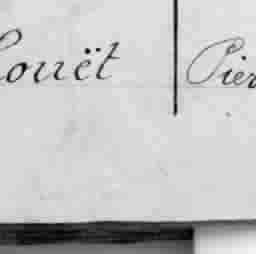 Couët Pier